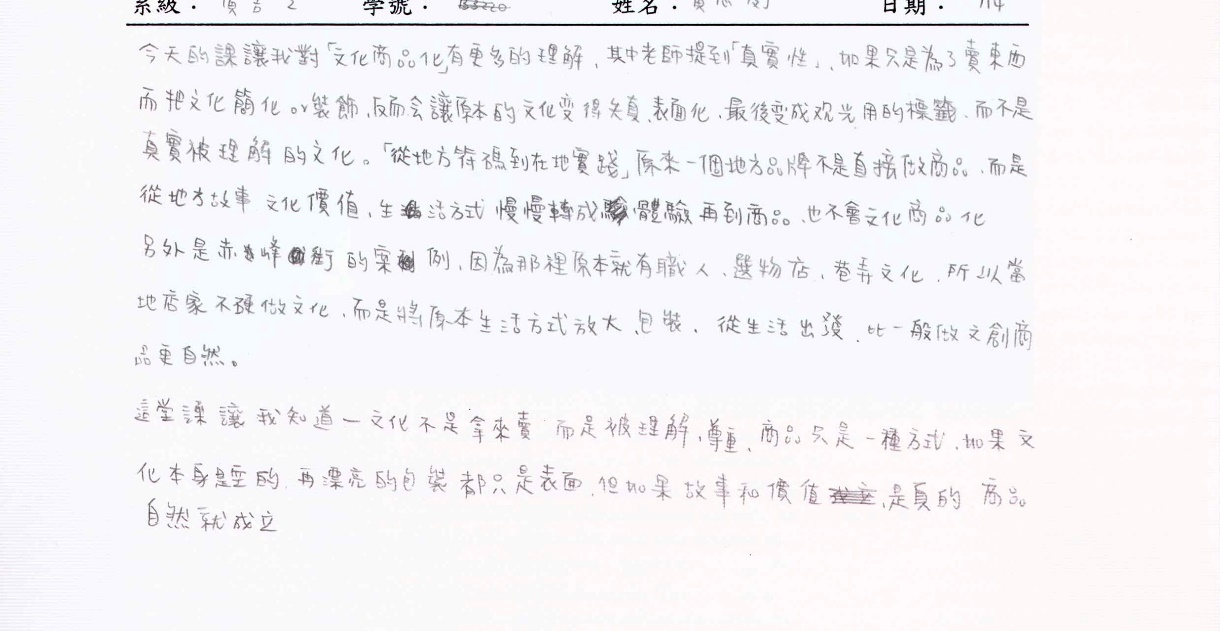 系級: 2 學號: 姓名: 日期:
今天的課讓我對「文化商品化」有更多的理解,其中老師提到「真實性」,如果只是為了賣東西
而把文化簡化or裝飾,反而会讓原本的文化变得失真、表面化,最後变成观光用的標籤,而不是
真實被理解的文化。「從地方符碼到在地實踐」原來一個地方品牌不是直接做商品,而是
從地方故事 文化價值,生活方式 慢慢轉成體驗再到商品,也不會文化商品化
另外是赤峰街的案例,因為那裡原本就有職人、選物店、巷弄文化,所以當
地店家不硬做文化,而是將原本生活方式放大、包裝,從生活出發,比一般做文創商
品更自然。
這堂課讓我知道一文化不是拿來賣 而是被理解,尊重,商品只是一種方式,如果文
化本身是空的,再漂亮的包裝都只是表面,但如果故事和價值是真的 商品
自然就成立